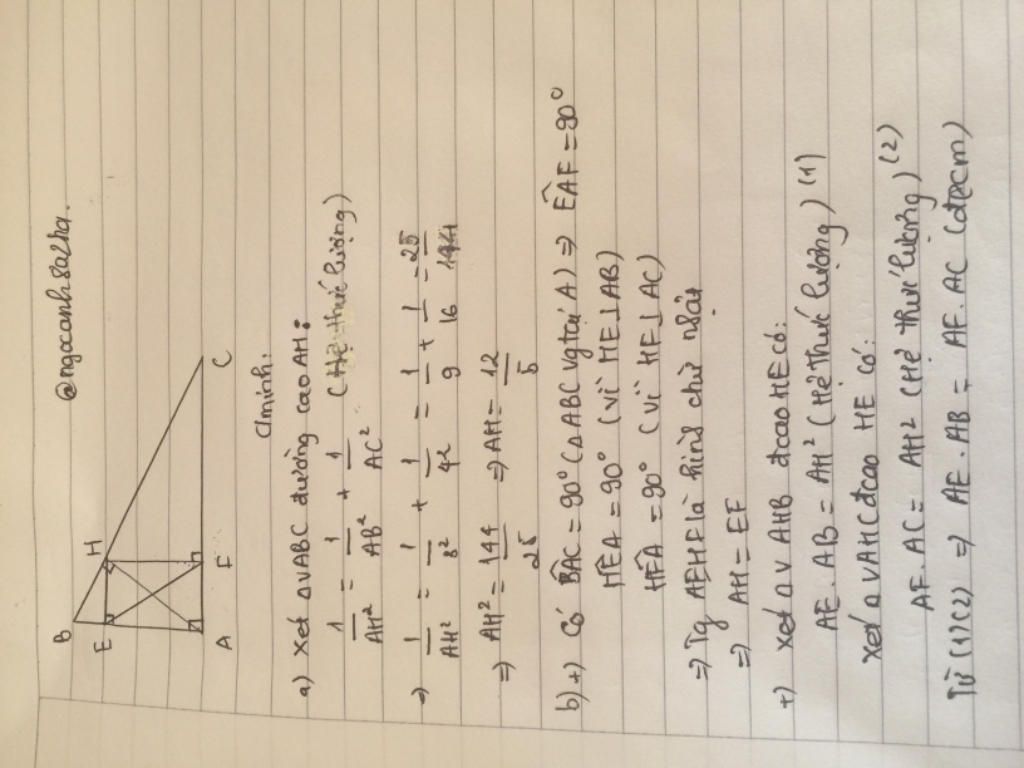 @ngocanhsa2ha.
B
H
E
A
F
C
Cminh:
a) Xét △vABC đường cao AH:
1/AH² = 1/AB² + 1/AC² (Hệ thức lượng)
⇒ 1/AH² = 1/3² + 1/4² = 1/9 + 1/16 = 25/144
⇒ AH² = 144/25 ⇒ AH = 12/5
b) +) Có BÂC = 90° (△ABC vg tại A) ⇒ EÂF = 90°
HÊA = 90° (vì HE⊥AB)
HF̂A = 90° (vì HF⊥AC)
⇒ Tg AEHF là hình chữ nhật
⇒ AH = EF
+) Xét △v AHB đcao HE có:
AE . AB = AH² (Hệ thức lượng) (1)
Xét △vAHC đcao HE có:
AF . AC = AH² (Hệ thức lượng) (2)
Từ (1)(2) ⇒ AE . AB = AF . AC (đpcm)